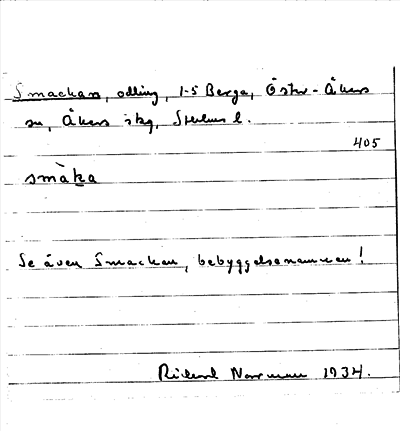 Smackan, odling, 1-5 Berga, Öster-Åkers
sn, Åkers skg, Sthlms l.
405
smàka
Se även Smackan, bebyggelsenamnen!
Rickard Norrman 1934.